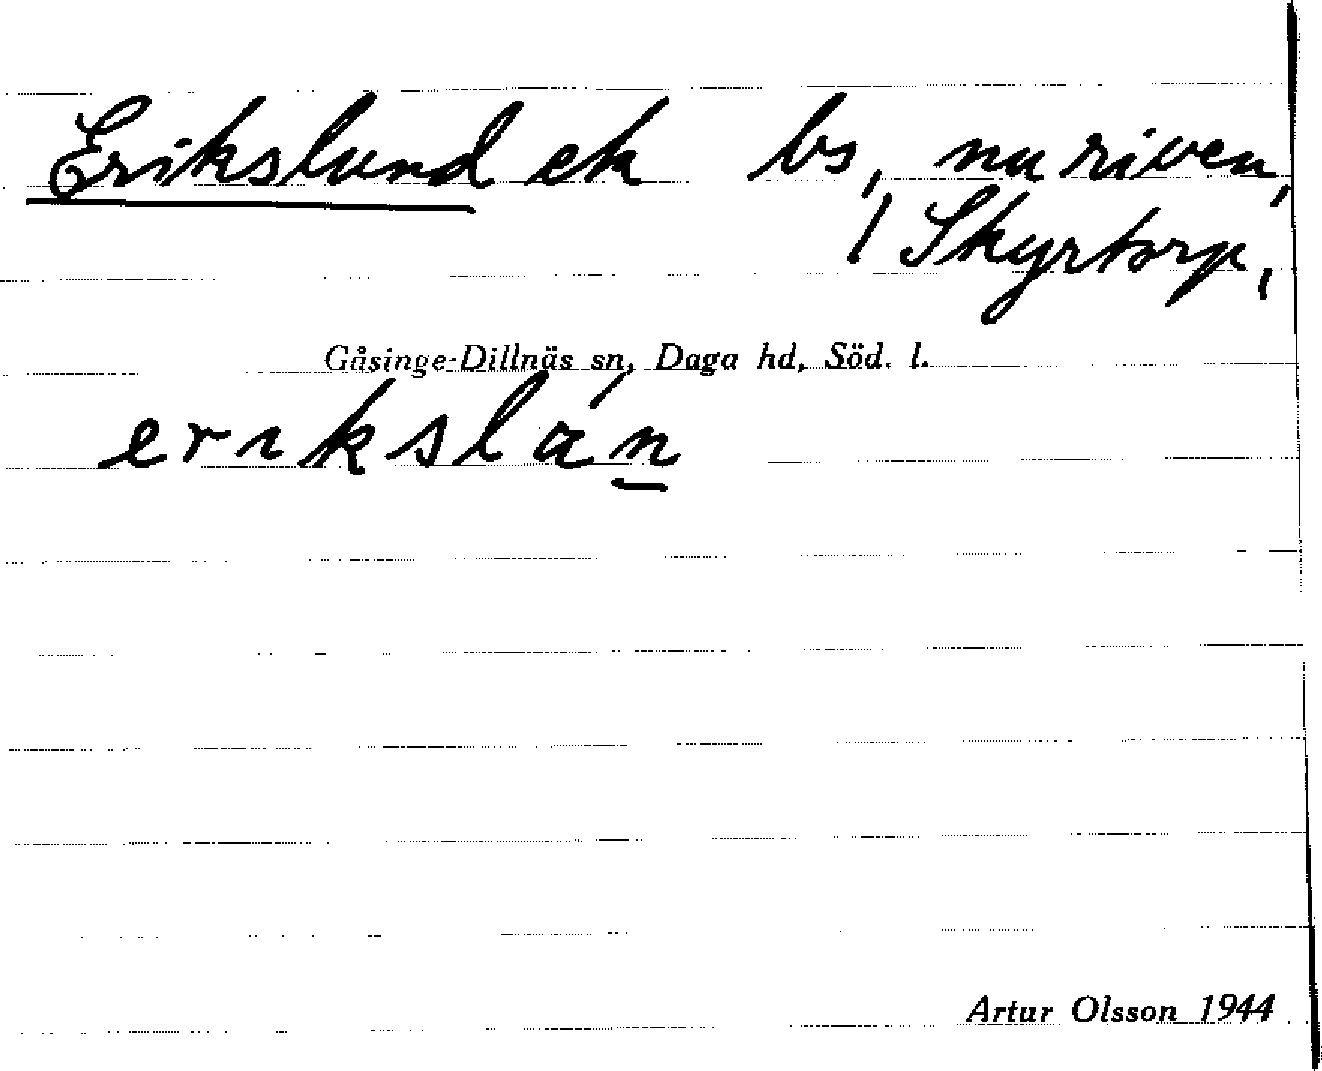 Erikslund ek bs, nu riven,
/ Skyrtorp,
Gåsinge-Dillnäs sn, Daga hd, Söd. l.
erikslán
Artur Olsson 1944